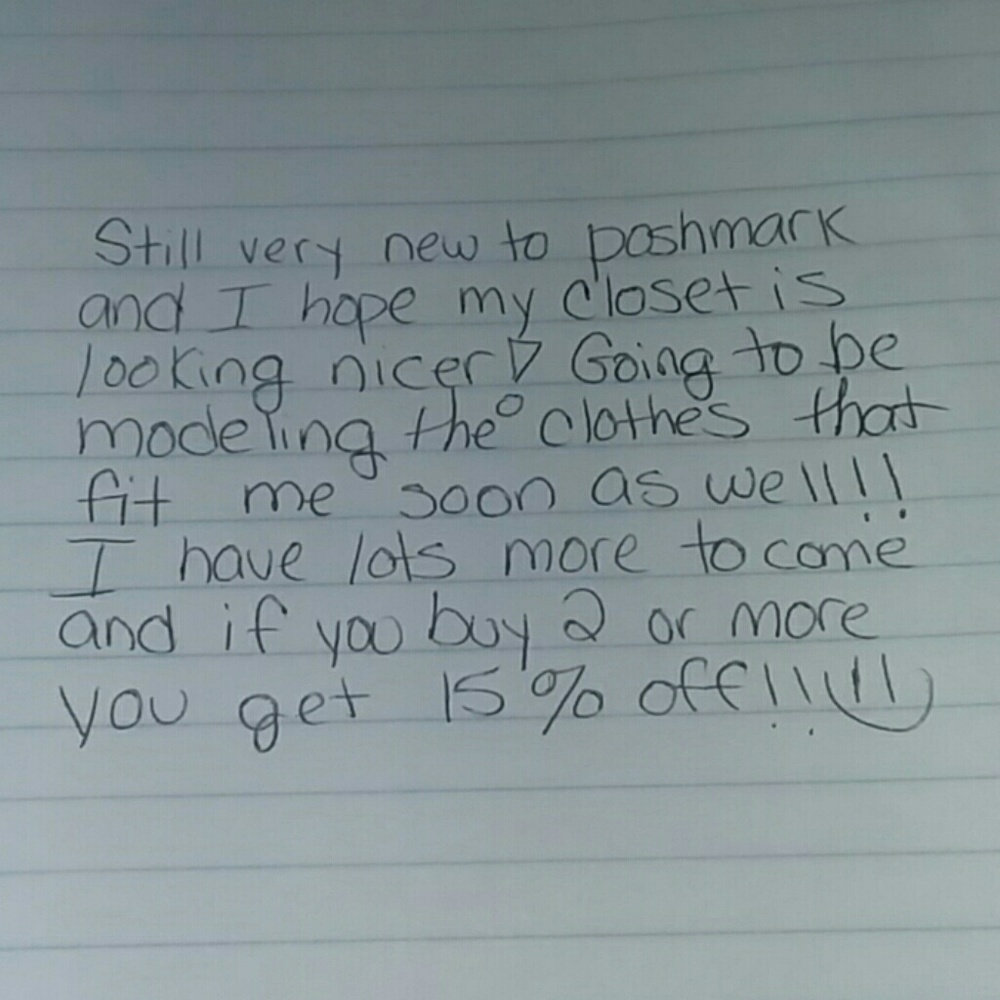 Still very new to poshmark
and I hope my closet is
looking nicer! Going to be
modeling the clothes that
fit me soon as well!!!
I have lots more to come
and if you buy 2 or more
you get 15% off!!